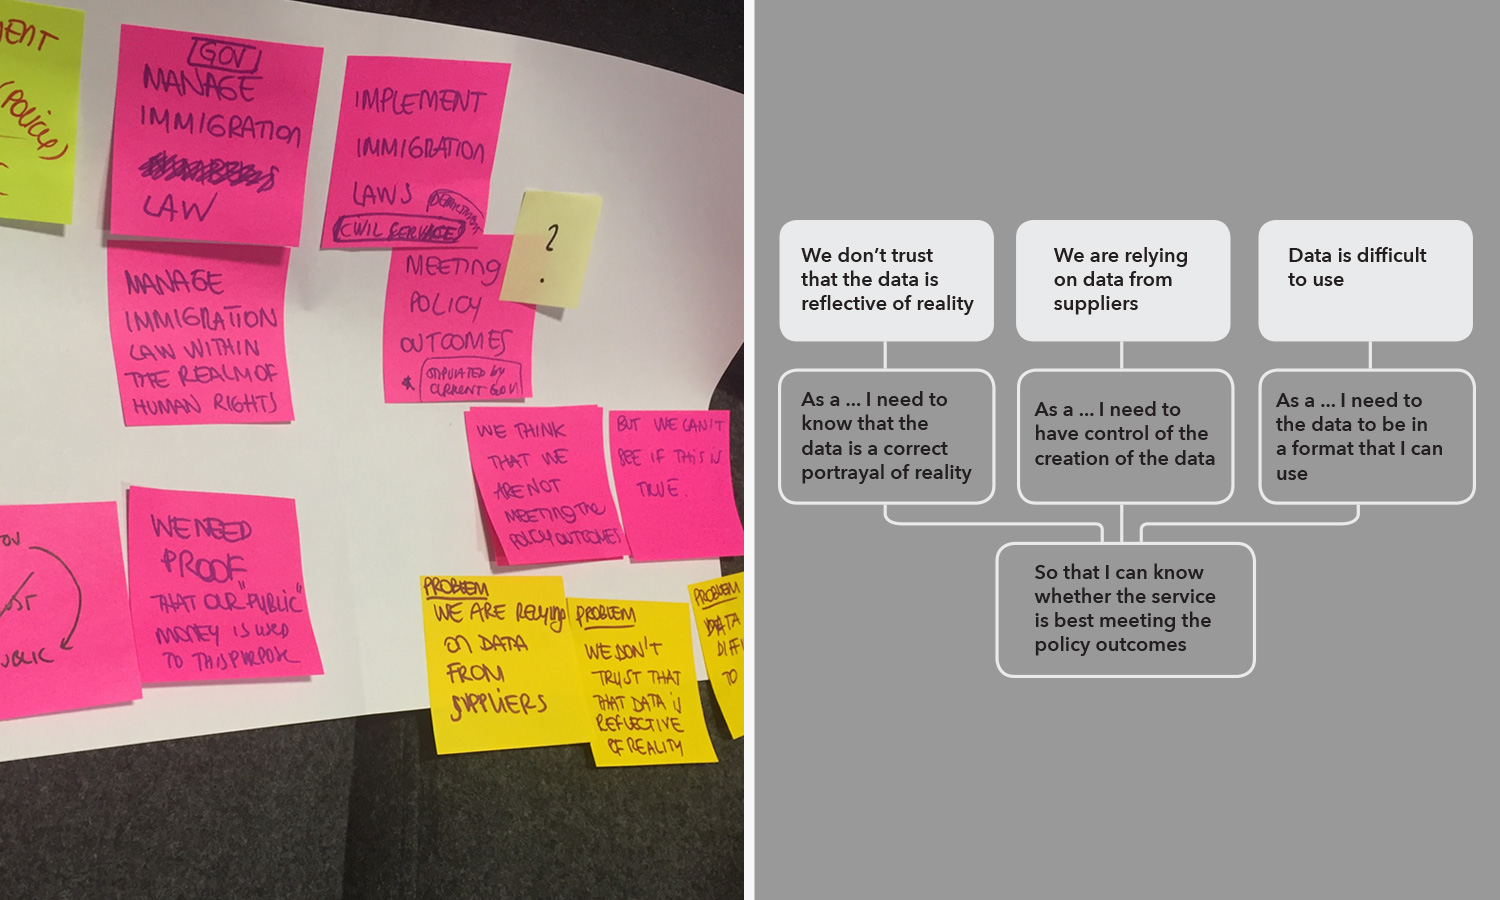 ENT
(POLICY)
GOV
MANAGE
IMMIGRATION
LAW
IMPLEMENT
IMMIGRATION
LAWS
CIVIL SERVICE
?
MANAGE
IMMIGRATION
LAW WITHIN
THE REALM OF
HUMAN RIGHTS
MEETING
POLICY
OUTCOMES
* STIPULATED by
CURRENT GOV
WE THINK
THAT WE
ARE NOT
MEETING THE
POLICY OUTCOMES
BUT WE CAN'T
SEE IF THIS IS
TRUE.
OV
UBLIC
WE NEED
PROOF
THAT OUR "PUBLIC"
MONEY IS USED
TO THIS PURPOSE
PROBLEM
WE ARE RELYING
ON DATA
FROM
SUPPLIERS
PROBLEM
WE DON'T
TRUST THAT
THAT DATA IS
REFLECTIVE
OF REALITY
PROBLEM
DATA
DIFFI
TO
We don't trust
that the data is
reflective of reality
We are relying
on data from
suppliers
Data is difficult
to use
As a ... I need to
know that the
data is a correct
portrayal of reality
As a ... I need to
have control of the
creation of the data
As a ... I need to
the data to be in
a format that I can
use
So that I can know
whether the service
is best meeting the
policy outcomes